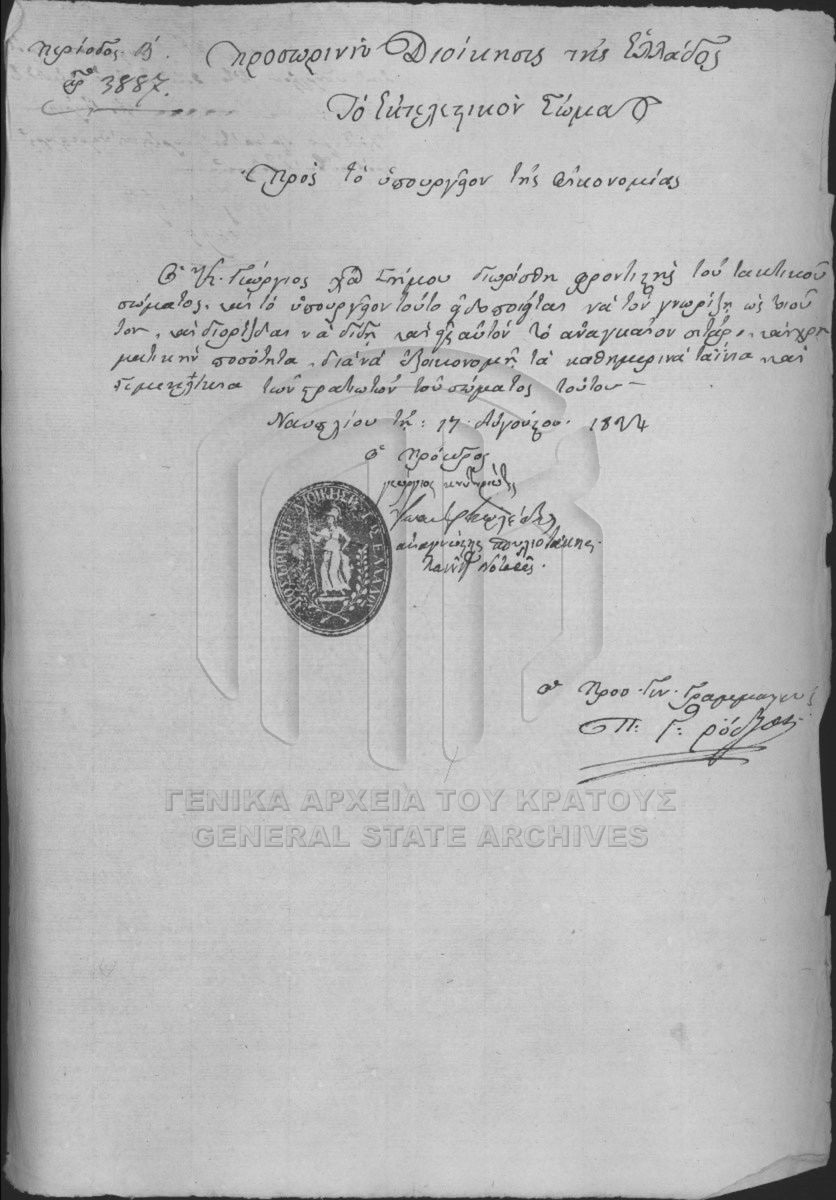 Περίοδος Β΄.
Προσωρινὴ Διοίκησις τῆς Ἑλλάδος
Ἀρ. 3887.
Τὸ Ἐκτελεστικὸν Σῶμα
Πρὸς τὸ ὑπουργεῖον τῆς Οἰκονομίας
Ὁ Κύρ. Γεώργιος χ΄΄ Σπήμου διωρίσθη φροντιστὴς τοῦ τακτικοῦ
σώματος, καὶ τὸ ὑπουργεῖον τοῦτο εἰδοποιεῖται νὰ τὸν γνωρίζῃ ὡς τοιοῦ
τον, καὶ διορίζεται νὰ δίδῃ καὶ εἰς αὐτὸν τὸ ἀναγκαῖον σιτάρι, καὶ χρη
ματικὴν ποσότητα, διὰ νὰ ἐξοικονομῇ τὰ καθημερινὰ ταΐνια καὶ
τῶν στρατιωτῶν τοῦ σώματος τούτου
Ναυπλίου τῇ: 17. Αὐγούστου. 1824
Ὁ Πρόεδρος
γεώργιος κουντουριώτης
ΠΡΟΣΩΡΙΝΗ ΔΙΟΙΚΗΣΙΣ ΤΗΣ ΕΛΛΑΔΟΣ
ἀναγνώστης σπηλιοτάκης.
Ὁ Προσ. Γεν. Γραμματεὺς
Π. Γ. Ῥόδιος
ΓΕΝΙΚΑ ΑΡΧΕΙΑ ΤΟΥ ΚΡΑΤΟΥΣ
GENERAL STATE ARCHIVES